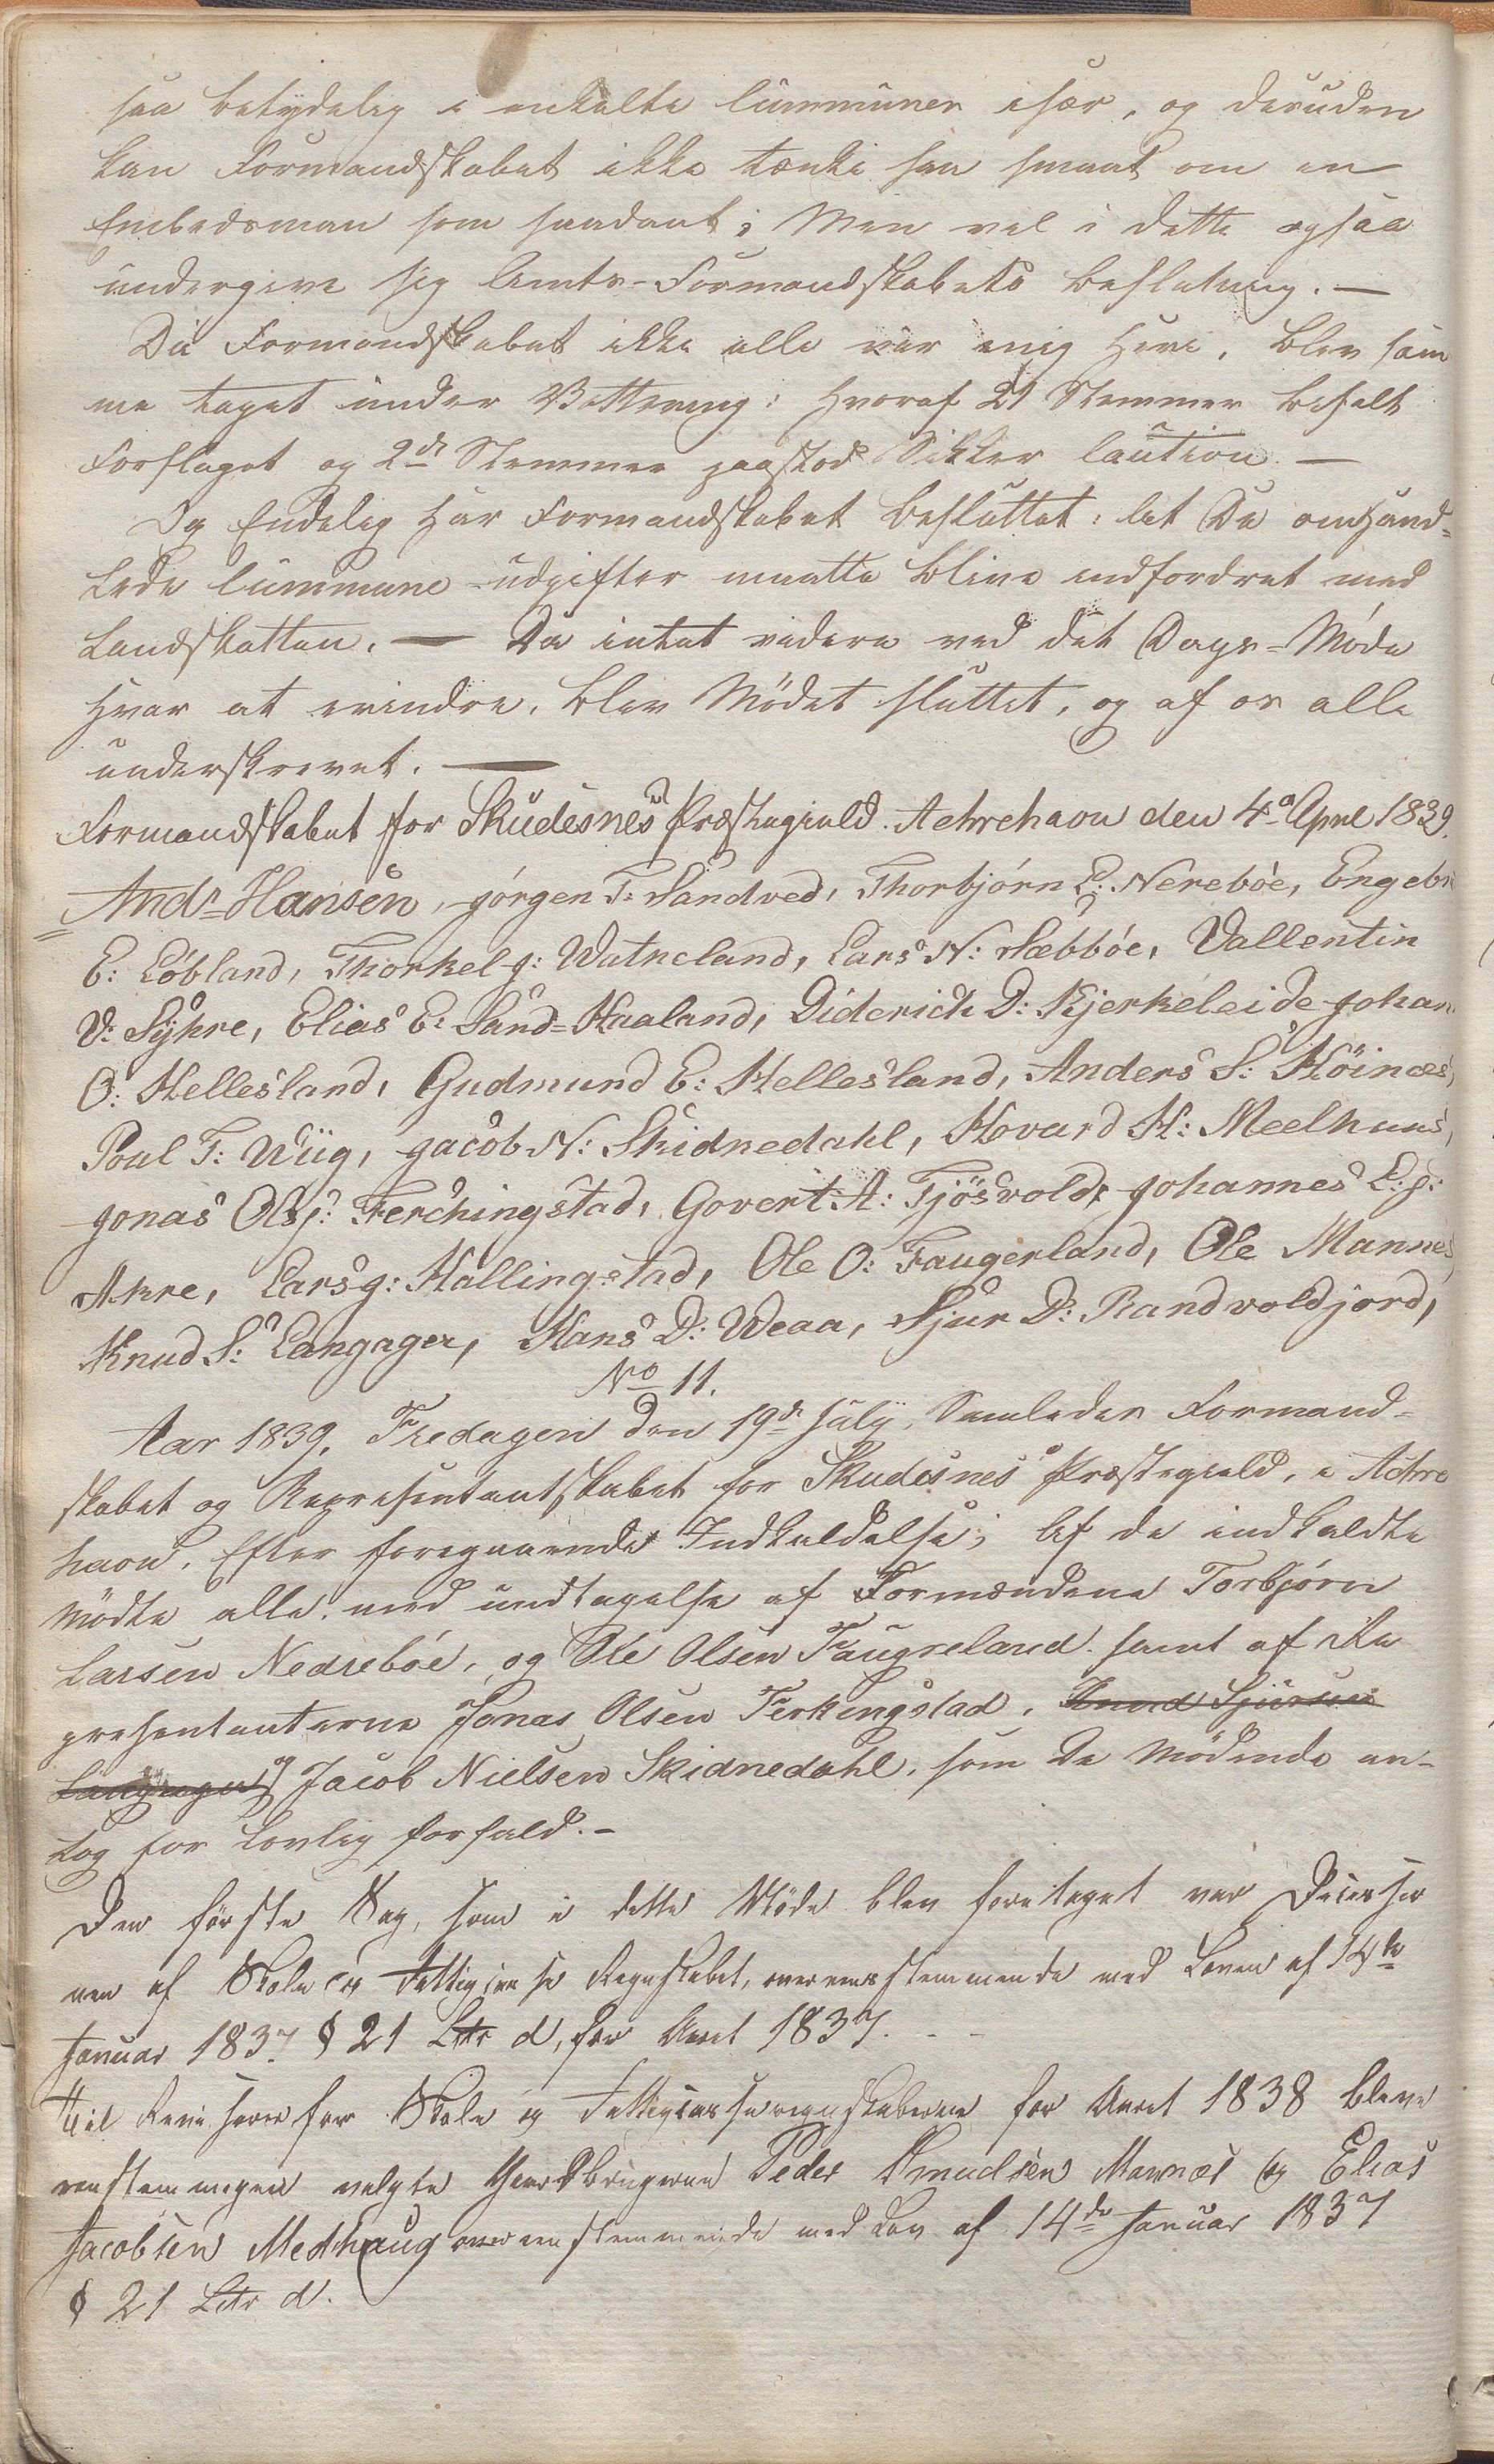 saa betydelig i enkelte Cummuner især, og desuden
kan Formandskabet ikke tænke saa smaat om en
Embedsman som saadant; Men vel i dette ogsaa
undergive sig Amts-Formandskabets Beslutning. —
Da Formandskabet ikke alle var enig Heri, blev sam
me taget under Vottering: hvoraf 21 Stemmer befalt
Forslaget og 2de Stemmer paastod Sikker Caution. —
Og Endelig har Formandskabet besluttet: At De omhand=
lede Cummune-udgifter maatte blive indfordret med
Landskatten. — Da intet videre ved det Dags-Møde
Hvar at erindre, blev Mødet sluttet, og af os alle
underskrevet. —
Formandskabet for Skudesnes Præstegield. Aehrehavn den 4de April 1839.
Andr Hansen, Jørgen T: Sandved, Thorbjørn L: Nerebøe, Engebr
E: Løbland, Thorkel J: Watneland, Lars N: Sæbbøe, Vallentin
V: Syhre, Elias E: Sand-Haaland, Diderich D: Kjerkeleide Johan
O: Hellesland, Gudmund E: Hellesland, Anders S: Høines,
Poul T: Wiig, Jacob N: Skidnedahl, Hovard H: Meelhuus,
Jonas Ols: Ferchingstad, Govert A: Tjøsvold, Johannes L: J:
Akre, Lars J: Hallingstad, Ole O: Faugerland, Ole Mannes
Knud S: Langager, Hans D: Weaa, Sjur D: Randvoldjord,
No 11.
Aar 1839, Fredagen den 19de July, Samledes Formand=
skabet og Repræsentantskabet for Skudesnes Præstegield, i Aehre
havn, Efter foregaaende Indkaldelse; Af de indkaldte
Mødte alle, med undtagelse af Formændene Torbjørn
Larsen Nedrebøe, og Ole Olsen Faugreland samt af Re
presentanterne Jonas Olsen Ferkingstad, Knud Sjursen
Langager og Jacob Nielsen Skidnedahl, som De Mødende an-
tog for Lovlig forfald. -
Den første Sag, som i dette Møde blev foretaget var Decissio
nen af Skole og Fattigkasse Regnskabet, overensstemmende med Loven af 14de
Januar 1837 § 21 Litr d, for Aaret 1837. - -
Til Revisorer for Skole og Fattigkasseregnskaberne for Aaret 1838 bleve
eenstemmigen valgte Gaardbrugerne Peder Knudsen Mannes og Elias
Jacobsen Medhaug overeenstemmende med Lov af 14de Januar 1837
§ 21 Litr d.